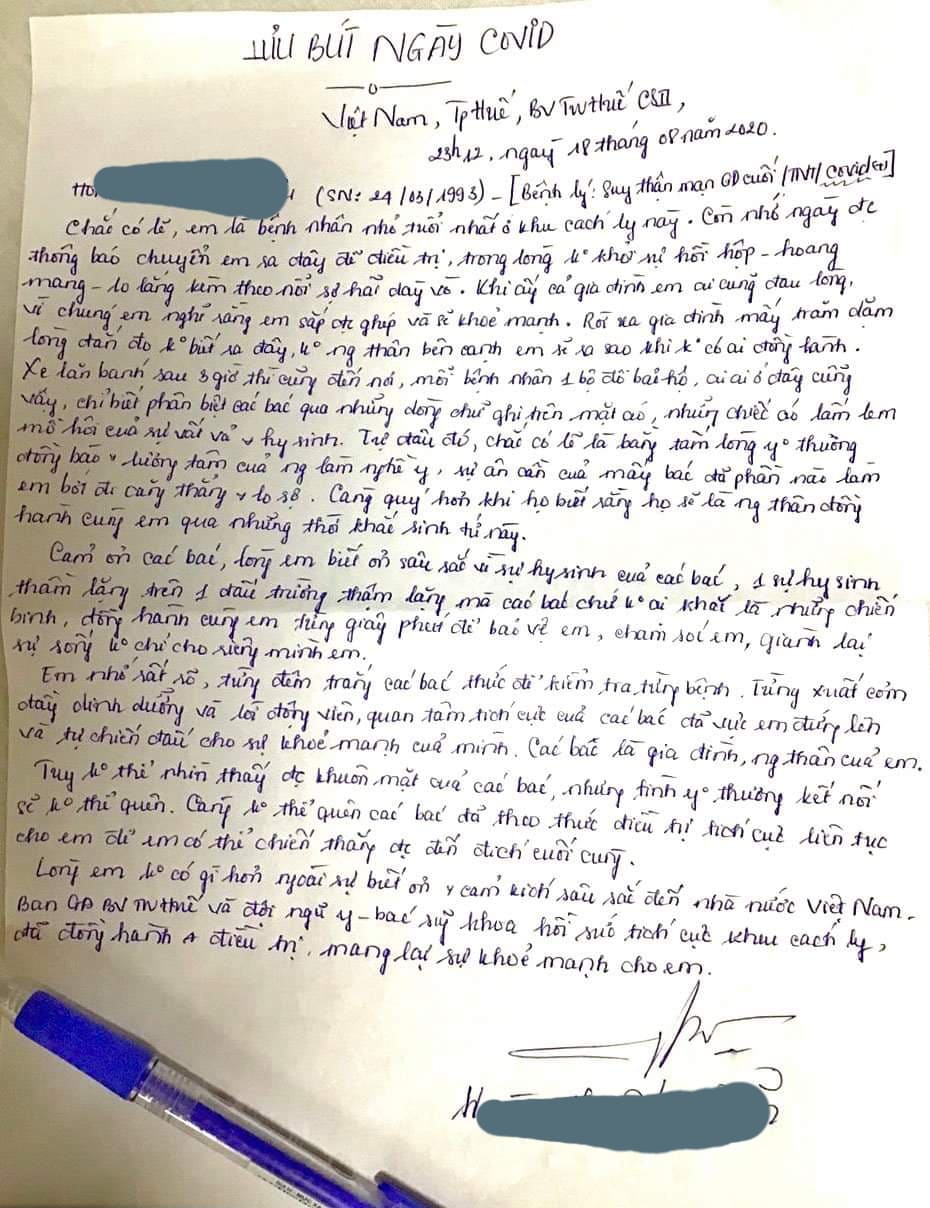 LƯU BÚT NGÀY COVID
Việt Nam, Tp Huế, BV TW Huế CSII,
23h12, ngày 18 tháng 08 năm 2020.
(SN: 24/03/1993) - [Bệnh lý: Suy thận mạn GĐ cuối/TNT/Covid(+)]
Chắc có lẽ, em là bệnh nhân nhỏ tuổi nhất ở khu cách ly này. Còn nhớ ngày đc
thông báo chuyển em ra đây để điều trị, trong lòng ko khỏi sự hồi hộp - hoang
mang - lo lắng kèm theo nỗi sợ hãi dày vò. Khi ấy cả gia đình em ai cũng đau lòng,
vì chúng em nghĩ rằng em sắp đc ghép và sẽ khoẻ mạnh. Rời xa gia đình mấy trăm dặm
lòng đắn đo ko biết ra đây, ko ng thân bên cạnh em sẽ ra sao khi k có ai đồng hành.
Xe lăn bánh sau 3 giờ thì cũng đến nơi, mỗi bệnh nhân 1 bộ đồ bảo hộ, ai ai ở đây cũng
vậy, chỉ biết phân biệt các bác qua những dòng chữ ghi trên mặt áo, những chiếc áo lấm lem
mồ hôi của sự vất vả + hy sinh. Từ đâu đó, chắc có lẽ là bằng tấm lòng yo thương
đồng bào + lương tâm của ng làm nghề y, sự ân cần của mấy bác đã phần nào làm
em bớt đi căng thẳng + lo sợ. Càng quý hơn khi họ biết rằng họ sẽ là ng thân đồng
hành cùng em qua những thời khắc sinh tử này.
Cảm ơn các bác, lòng em biết ơn sâu sắc vì sự hy sinh của các bác, 1 sự hy sinh
thầm lặng trên 1 đấu trường thầm lặng mà các bác chứ ko ai khác là những chiến
binh, đồng hành cùng em từng giây phút để bảo vệ em, chăm sóc em, giành lại
sự sống ko chỉ cho riêng mình em.
Em nhớ rất rõ, từng đêm trắng các bác thức để kiểm tra từng bệnh. Từng xuất cơm
đầy dinh dưỡng và lời động viên, quan tâm tích cực của các bác đã vực em đứng lên
và tự chiến đấu cho sự khoẻ mạnh của mình. Các bác là gia đình, ng thân của em.
Tuy ko thể nhìn thấy đc khuôn mặt của các bác, nhưng tình yo thương kết nối
sẽ ko thể quên. Càng ko thể quên các bác đã theo thức điều trị tích cực liên tục
cho em để em có thể chiến thắng đc đến đích cuối cùng.
Lòng em ko có gì hơn ngoài sự biết ơn + cảm kích sâu sắc đến nhà nước Việt Nam.
Ban GĐ BV TW Huế và đội ngũ y - bác sỹ khoa hồi sức tích cực khu cách ly,
đã đồng hành + điều trị, mang lại sự khoẻ mạnh cho em.